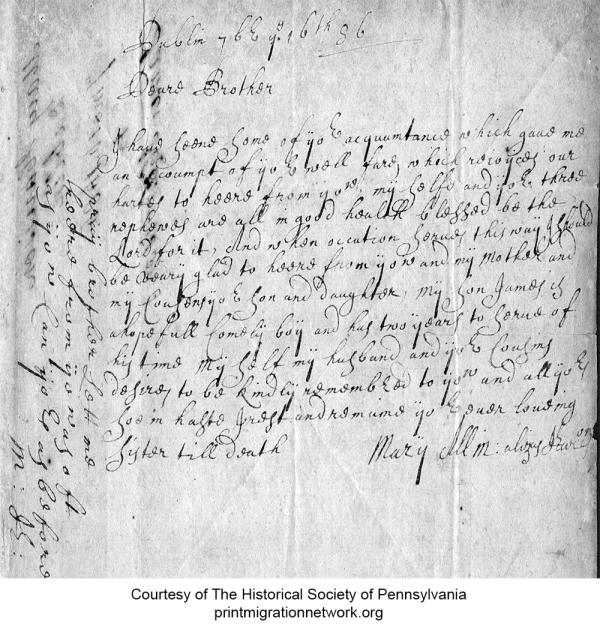 Dublin 7br ye 16th 86
Deare Brother
I have seene some of yor acquantance which gave me
an accoumpt of yor well fare, which reioyces our
hartes to heere from yow, my selfe and yor three
nephewes are all in good health blessed be the
Lord for it, And when occation serves this way I should
be veary glad to heere from yow and my Mother and
my Cousens yor son and daughter, My son James is
a hopefull Comely boy and has two years to serve of
his time My self my husband and yor Cousins
desires to be kindly remembred to yow and all yors
soe in haste I rest and remaine yor ever loveing
Sister till death
Mary Allin: alias
pray brother Lett me
heere from yow as oft
as yow can yors as before
M:
Courtesy of The Historical Society of Pennsylvania
printmigrationnetwork.org